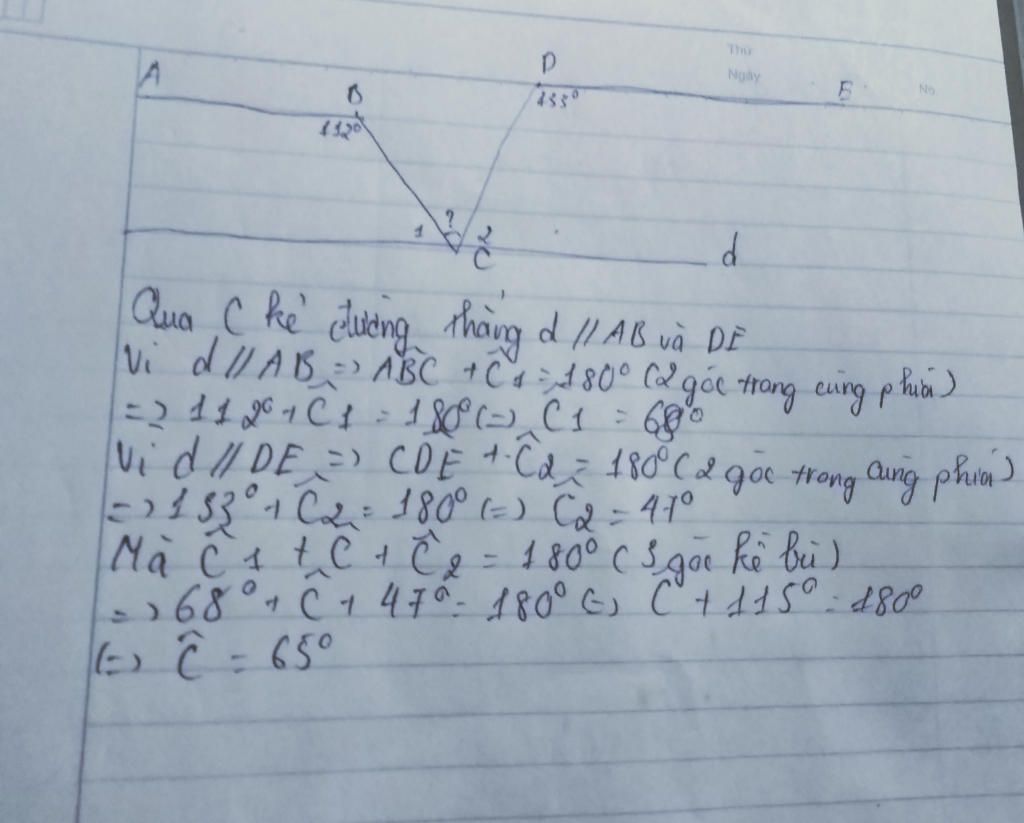 Thứ
Ngày
No.
A B D E
112° 133°
1 ? 2
C d
Qua C kẻ đường thẳng d // AB và DE
Vì d // AB => ABC + C1 = 180° (2 góc trong cùng phía)
=> 112° + C1 = 180° (=) C1 = 68°
Vì d // DE => CDE + C2 = 180° (2 góc trong cùng phía)
=> 133° + C2 = 180° (=) C2 = 47°
Mà C1 + C + C2 = 180° (3 góc kề bù)
=> 68° + C + 47° = 180° (=) C + 115° = 180°
(=) C = 65°